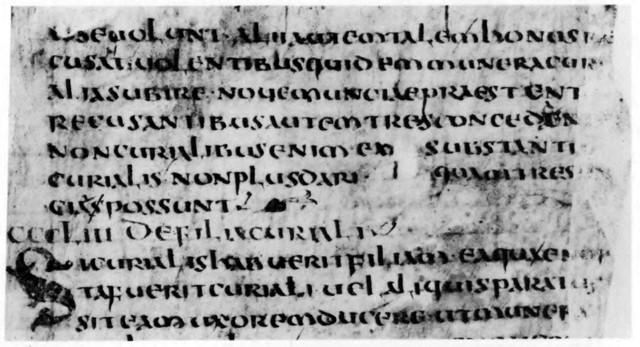 UOLUNT · ALII AUTEM TALEM
CUSAT · UOLENTIBUS QUIDEM MUNERA CUR
ALIA SUBIRE · NOUEM UNCIAE PRAESTENT
RECUSANTIBUS AUTEM TRES CONCEDEN
NON CURIALIBUS ENIM EX SUBSTANTI
CURIALIS · NON PLUS DARI QUAM TRES
CIAS POSSUNT ·
CCCLIII DE FILIA CURIALI
SI CURIALIS HABUERIT FILIAM EA QUAE
TA FUERIT CURIALI UEL ALIQUIS PARAT
SIT EAM UXOREM DUCERE UT MUNER